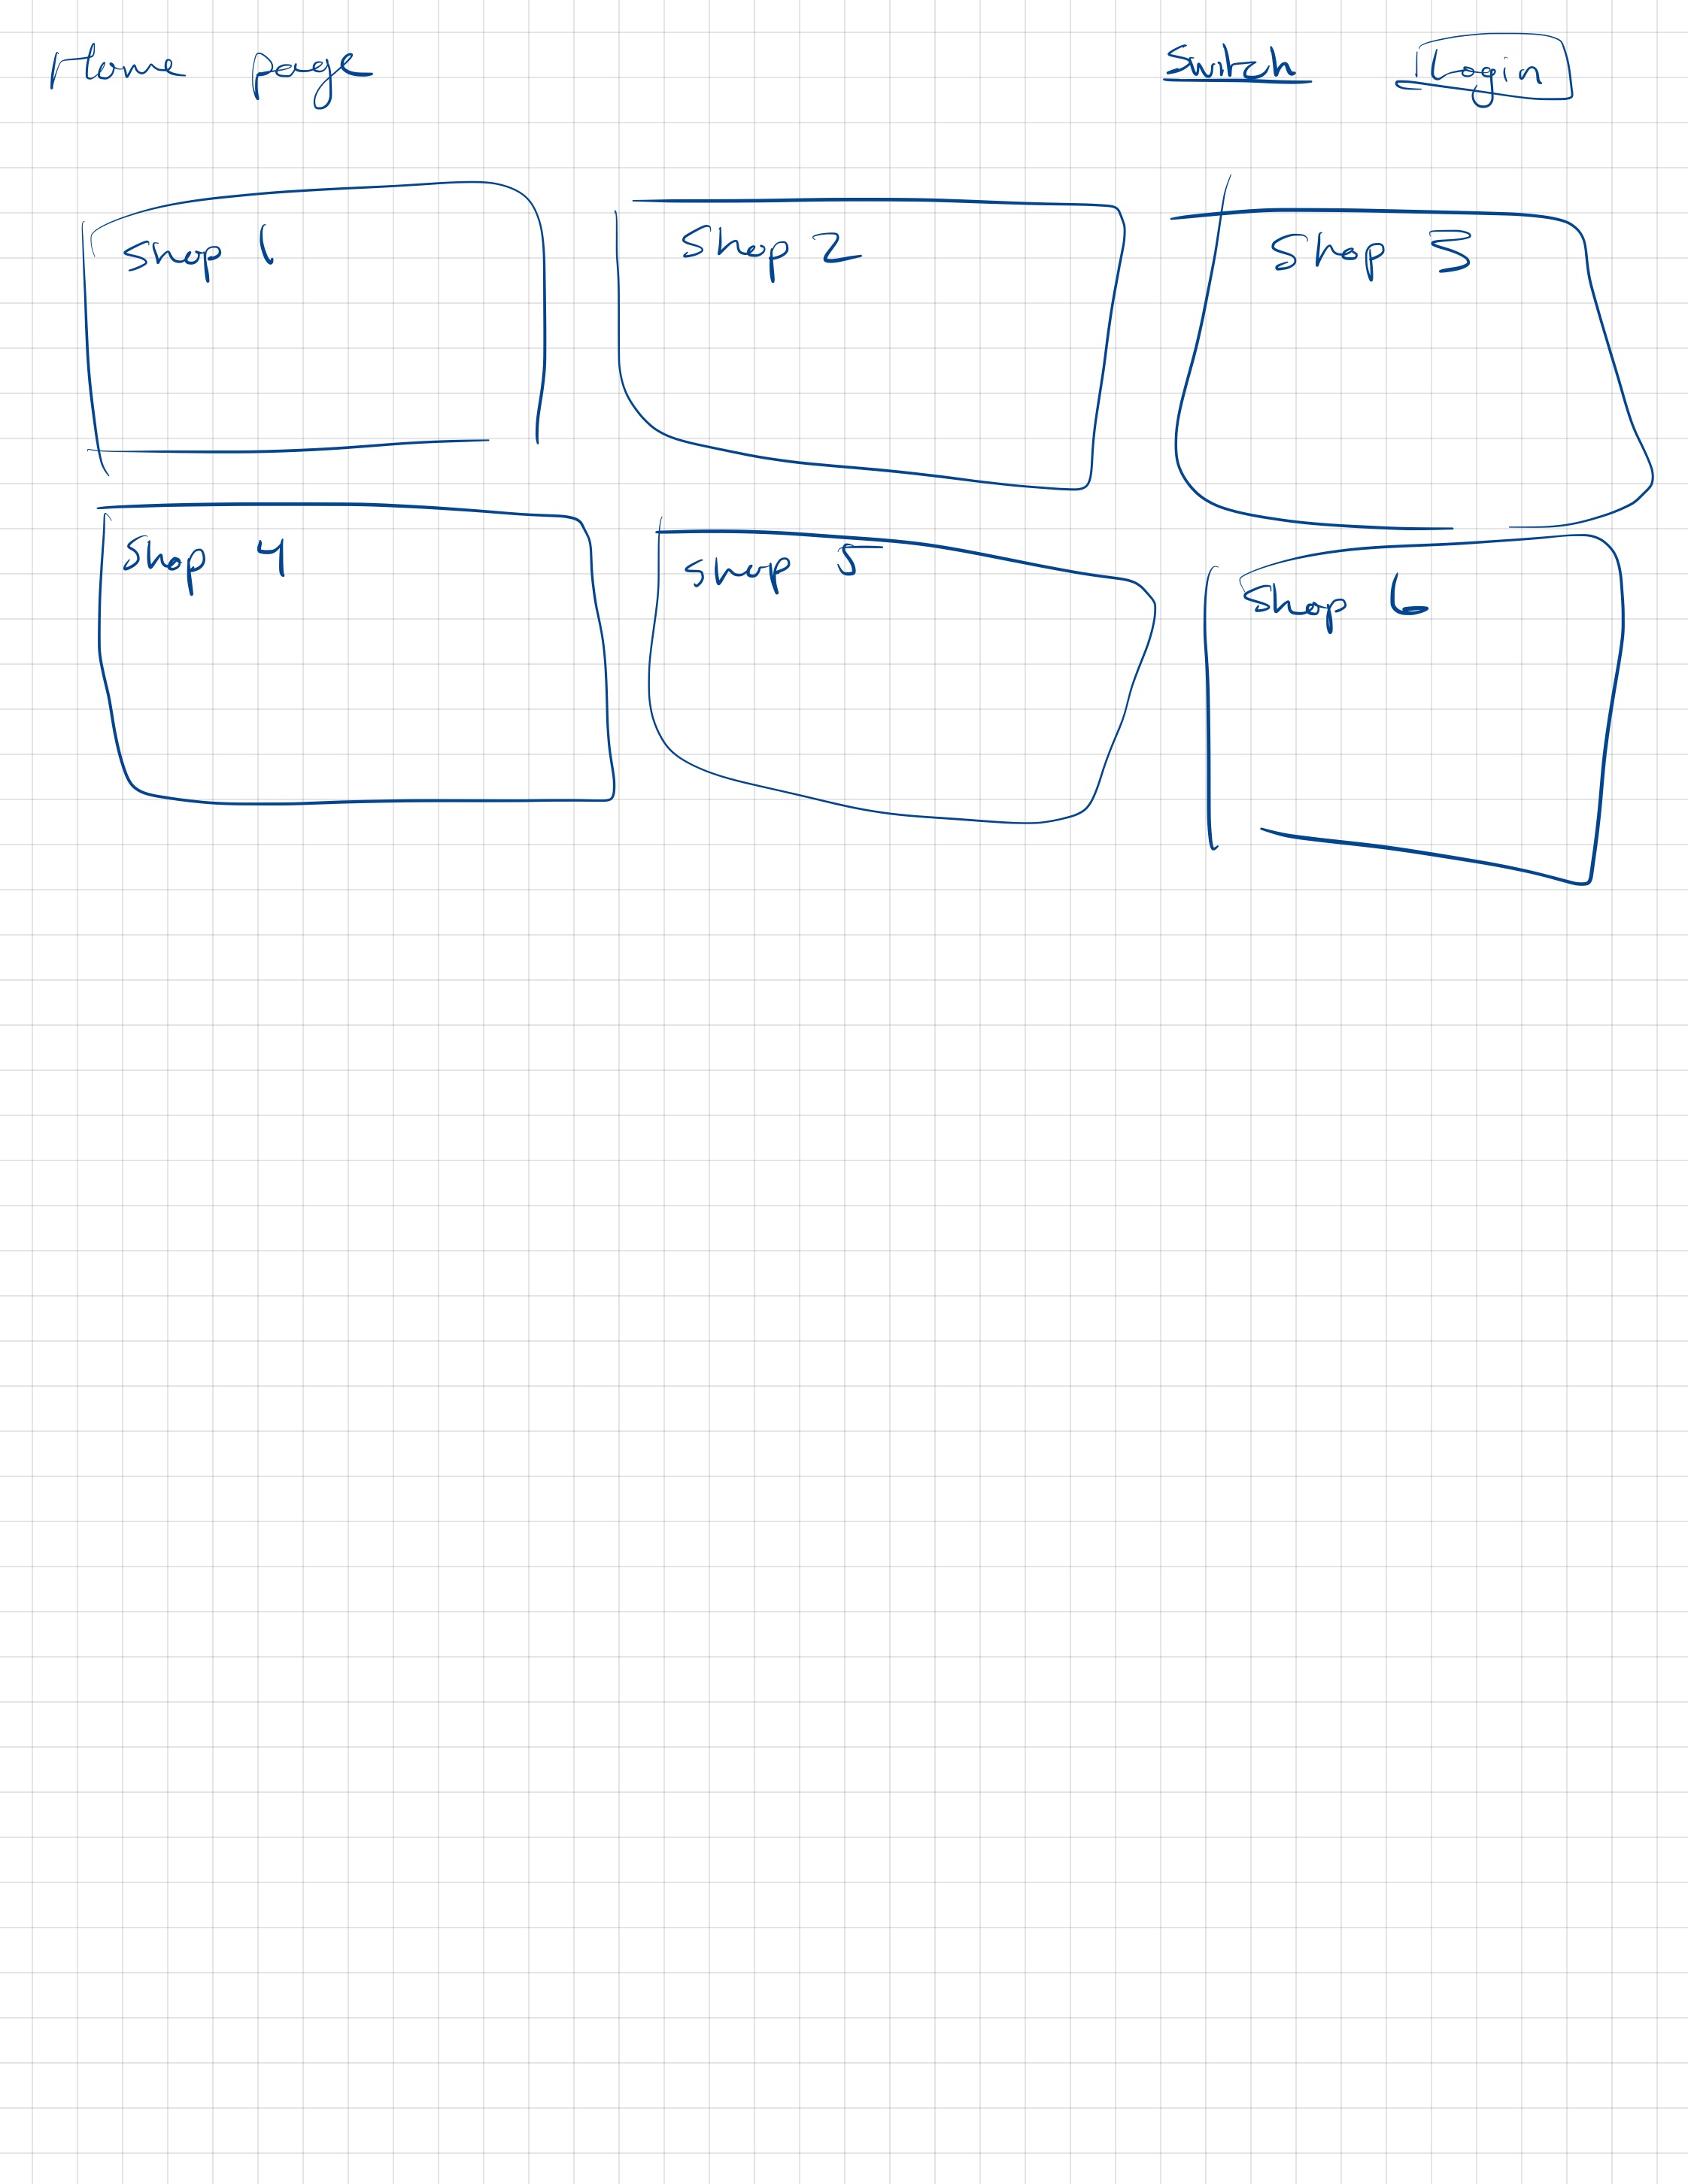 Home page Login
Shop 1 Shop 2 Shop 3
Shop 4 Shop 5 Shop 6